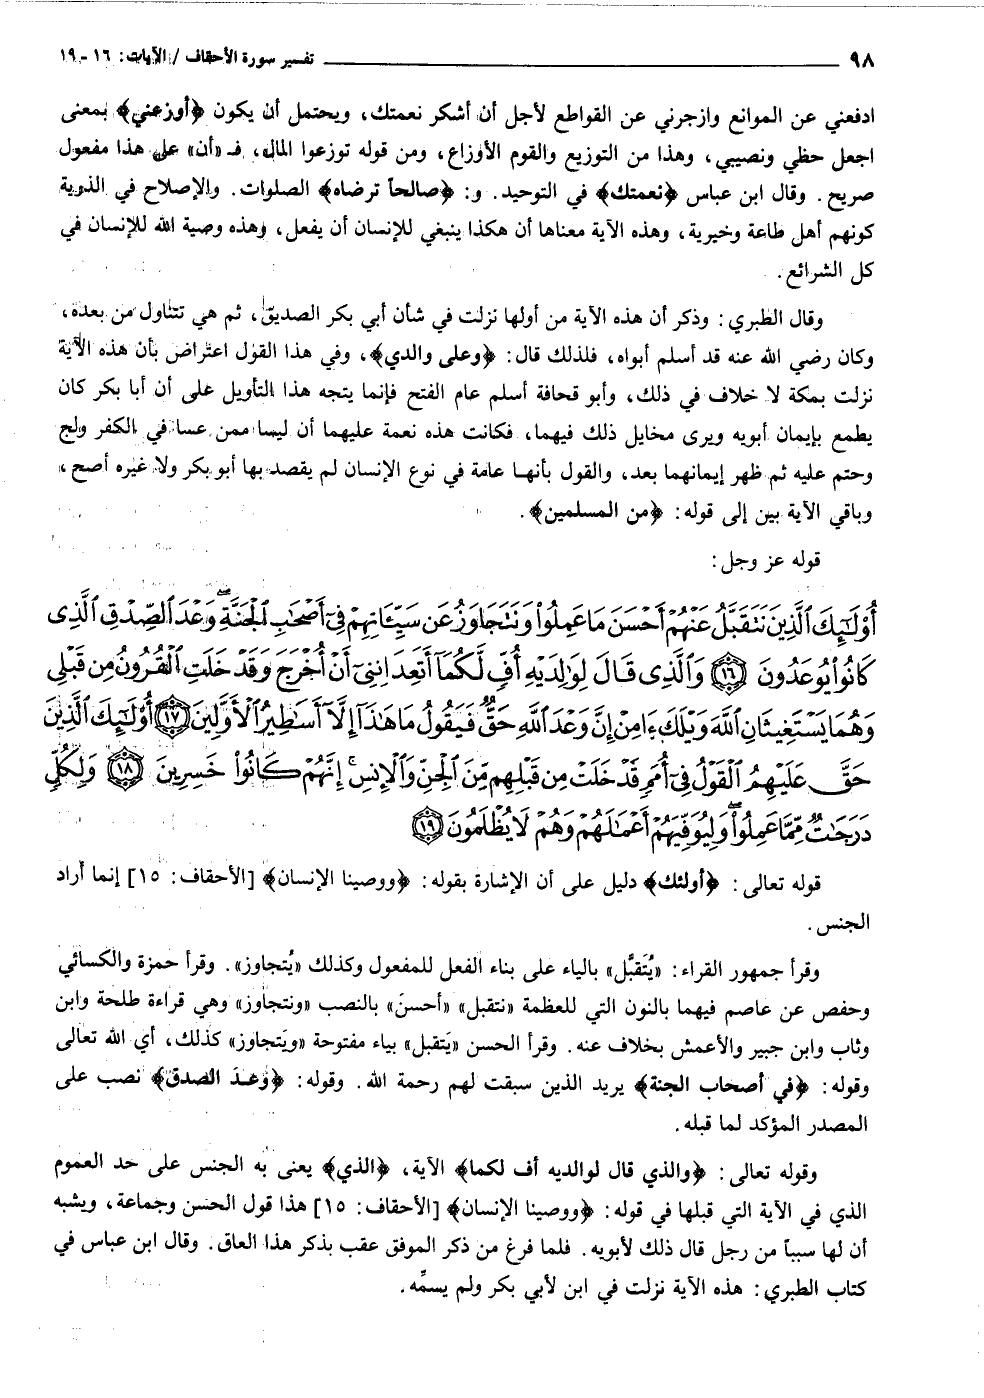 ٩٨ تفسير سورة الأحقاف / الآيات: ١٦ - ١٩
ادفعني عن الموانع وازجرني عن القواطع لأجل أن أشكر نعمتك، ويحتمل أن يكون ﴿أوزعني﴾ بمعنى
اجعل حظي ونصيبي، وهذا من التوزيع والقوم الأوزاع، ومن قوله توزعوا المال، فـ «أن» على هذا مفعول
صريح. وقال ابن عباس ﴿نعمتك﴾ في التوحيد. و: ﴿صالحاً ترضاه﴾ الصلوات. والإصلاح في الذرية
كونهم أهل طاعة وخيرية، وهذه الآية معناها أن هكذا ينبغي للإنسان أن يفعل، وهذه وصية الله للإنسان في
كل الشرائع.
وقال الطبري: وذكر أن هذه الآية من أولها نزلت في شأن أبي بكر الصديق، ثم هي تتناول من بعده،
وكان رضي الله عنه قد أسلم أبواه، فلذلك قال: ﴿وعلى والدي﴾، وفي هذا القول اعتراض بأن هذه الآية
نزلت بمكة لا خلاف في ذلك، وأبو قحافة أسلم عام الفتح فإنما يتجه هذا التأويل على أن أبا بكر كان
يطمع بإيمان أبويه ويرى مخايل ذلك فيهما، فكانت هذه نعمة عليهما أن ليسا ممن عسا في الكفر ولج
وحتم عليه ثم ظهر إيمانهما بعد، والقول بأنهـا عامة في نوع الإنسان لم يقصد بها أبو بكر ولا غيره أصح،
وباقي الآية بين إلى قوله: ﴿من المسلمين﴾.
قوله عز وجل:
أُوْلَٰٓئِكَ ٱلَّذِينَ نَتَقَبَّلُ عَنْهُمْ أَحْسَنَ مَا عَمِلُوا۟ وَنَتَجَاوَزُ عَن سَيِّـَٔاتِهِمْ فِىٓ أَصْحَٰبِ ٱلْجَنَّةِ ۖ وَعْدَ ٱلصِّدْقِ ٱلَّذِى
كَانُوا۟ يُوعَدُونَ ١٦ وَٱلَّذِى قَالَ لِوَٰلِدَيْهِ أُفٍّ لَّكُمَآ أَتَعِدَانِنِىٓ أَنْ أُخْرَجَ وَقَدْ خَلَتِ ٱلْقُرُونُ مِن قَبْلِى
وَهُمَا يَسْتَغِيثَانِ ٱللَّهَ وَيْلَكَ ءَامِنْ إِنَّ وَعْدَ ٱللَّهِ حَقٌّ فَيَقُولُ مَا هَٰذَآ إِلَّآ أَسَٰطِيرُ ٱلْأَوَّلِينَ ١٧ أُو۟لَٰٓئِكَ ٱلَّذِينَ
حَقَّ عَلَيْهِمُ ٱلْقَوْلُ فِىٓ أُمَمٍ قَدْ خَلَتْ مِن قَبْلِهِم مِّنَ ٱلْجِنِّ وَٱلْإِنسِ ۖ إِنَّهُمْ كَانُوا۟ خَٰسِرِينَ ١٨ وَلِكُلٍّ
دَرَجَٰتٌ مِّمَّا عَمِلُوا۟ ۖ وَلِيُوَفِّيَهُمْ أَعْمَٰلَهُمْ وَهُمْ لَا يُظْلَمُونَ ١٩
قوله تعالى: ﴿أولئك﴾ دليل على أن الإشارة بقوله: ﴿ووصينا الإنسان﴾ [الأحقاف: ١٥] إنما أراد
الجنس.
وقرأ جمهور القراء: «يُتَقبَّل» بالياء على بناء الفعل للمفعول وكذلك «يُتجاوز». وقرأ حمزة والكسائي
وحفص عن عاصم فيهما بالنون التي للعظمة «نتقبل» «أحسنَ» بالنصب «ونتجاوز» وهي قراءة طلحة وابن
وثاب وابن جبير والأعمش بخلاف عنه. وقرأ الحسن «يَتقبل» بياء مفتوحة «ويَتجاوز» كذلك، أي الله تعالى
وقوله: ﴿في أصحاب الجنة﴾ يريد الذين سبقت لهم رحمة الله. وقوله: ﴿وَعدَ الصدق﴾ نصب على
المصدر المؤكد لما قبله.
وقوله تعالى: ﴿والذي قال لوالديه أف لكما﴾ الآية، ﴿الذي﴾ يعنى به الجنس على حد العموم
الذي في الآية التي قبلها في قوله: ﴿ووصينا الإنسان﴾ [الأحقاف: ١٥] هذا قول الحسن وجماعة، ويشبه
أن لها سبباً من رجل قال ذلك لأبويه. فلما فرغ من ذكر الموفق عقب بذكر هذا العاق. وقال ابن عباس في
كتاب الطبري: هذه الآية نزلت في ابن لأبي بكر ولم يسمِّه.